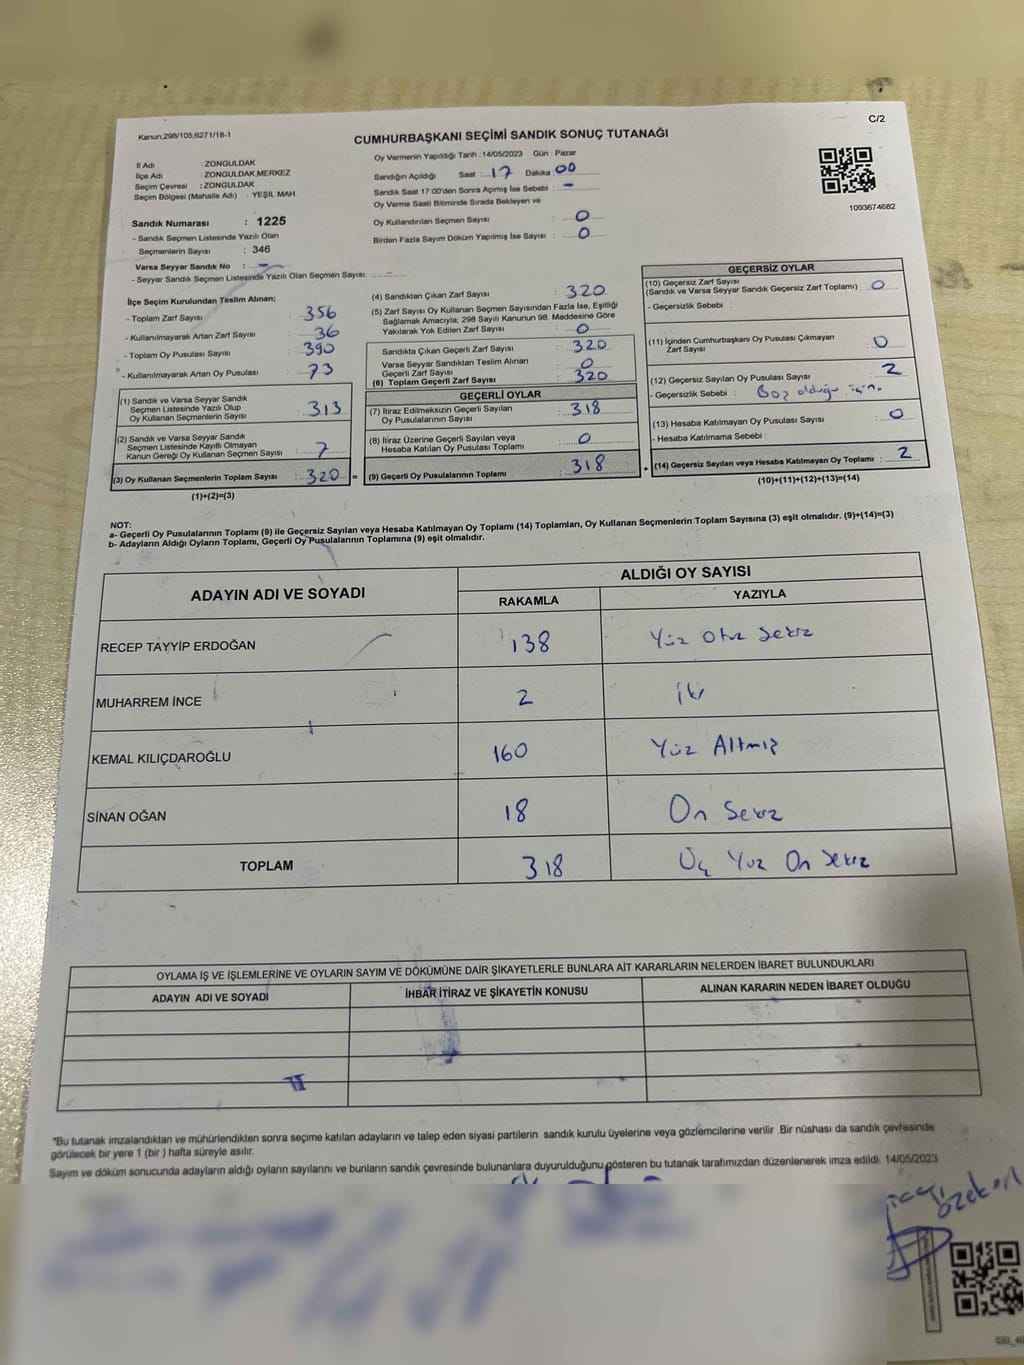 Kanun,298/105;6271/18-1
C/2
CUMHURBAŞKANI SEÇİMİ SANDIK SONUÇ TUTANAĞI
İl Adı : ZONGULDAK
İlçe Adı : ZONGULDAK,MERKEZ
Seçim Çevresi : ZONGULDAK
Seçim Bölgesi (Mahalle Adı) : YEŞİL MAH.
Oy Vermenin Yapıldığı Tarih :14/05/2023 Gün : Pazar
Sandığın Açıldığı Saat : 17 Dakika : 00
Sandık Saat 17:00'den Sonra Açımış İse Sebebi : -
Oy Verme Saati Bitiminde Sırada Bekleyen ve
Oy Kullandırılan Seçmen Sayısı : 0
Birden Fazla Sayım Döküm Yapılmış İse Sayısı : 0
1093674682
Sandık Numarası : 1225
- Sandık Seçmen Listesinde Yazılı Olan
Seçmenlerin Sayısı : 346
Varsa Seyyar Sandık No : -
- Seyyar Sandık Seçmen Listesinde Yazılı Olan Seçmen Sayısı: -
İlçe Seçim Kurulundan Teslim Alınan;
- Toplam Zarf Sayısı : 356
- Kullanılmayarak Artan Zarf Sayısı : 36
- Toplam Oy Pusulası Sayısı : 390
- Kullanılmayarak Artan Oy Pusulası : 73
(1) Sandık ve Varsa Seyyar Sandık
Seçmen Listesinde Yazılı Olup
Oy Kullanan Seçmenlerin Sayısı : 313
(2) Sandık ve Varsa Seyyar Sandık
Seçmen Listesinde Kayıtlı Olmayan
Kanun Gereği Oy Kullanan Seçmen Sayısı : 7
(3) Oy Kullanan Seçmenlerin Toplam Sayısı : 320 =
(1)+(2)=(3)
(4) Sandıktan Çıkan Zarf Sayısı : 320
(5) Zarf Sayısı Oy Kullanan Seçmen Sayısından Fazla İse, Eşitliği
Sağlamak Amacıyla; 298 Sayılı Kanunun 98. Maddesine Göre
Yakılarak Yok Edilen Zarf Sayısı : 0
Sandıkta Çıkan Geçerli Zarf Sayısı : 320
Varsa Seyyar Sandıktan Teslim Alınan
Geçerli Zarf Sayısı : 0
(6) Toplam Geçerli Zarf Sayısı : 320
GEÇERLİ OYLAR
(7) İtiraz Edilmeksizin Geçerli Sayılan
Oy Pusulalarının Sayısı : 318
(8) İtiraz Üzerine Geçerli Sayılan veya
Hesaba Katılan Oy Pusulası Toplamı : 0
(9) Geçerli Oy Pusulalarının Toplamı : 318 +
GEÇERSİZ OYLAR
(10) Geçersiz Zarf Sayısı
(Sandık ve Varsa Seyyar Sandık Geçersiz Zarf Toplamı) : 0
- Geçersizlik Sebebi :
(11) İçinden Cumhurbaşkanı Oy Pusulası Çıkmayan
Zarf Sayısı : 0
(12) Geçersiz Sayılan Oy Pusulası Sayısı : 2
- Geçersizlik Sebebi : Boş olduğu için.
(13) Hesaba Katılmayan Oy Pusulası Sayısı : 0
- Hesaba Katılmama Sebebi :
(14) Geçersiz Sayılan veya Hesaba Katılmayan Oy Toplamı : 2
(10)+(11)+(12)+(13)=(14)
NOT:
a- Geçerli Oy Pusulalarının Toplamı (9) ile Geçersiz Sayılan veya Hesaba Katılmayan Oy Toplamı (14) Toplamları, Oy Kullanan Seçmenlerin Toplam Sayısına (3) eşit olmalıdır. (9)+(14)=(3)
b- Adayların Aldığı Oyların Toplamı, Geçerli Oy Pusulalarının Toplamına (9) eşit olmalıdır.
ADAYIN ADI VE SOYADI
ALDIĞI OY SAYISI
RAKAMLA YAZIYLA
RECEP TAYYİP ERDOĞAN 138 Yüz Otuz Sekiz
MUHARREM İNCE 2 iki
KEMAL KILIÇDAROĞLU 160 Yüz Altmış
SİNAN OĞAN 18 On Sekiz
TOPLAM 318 Üç Yüz On Sekiz
OYLAMA İŞ VE İŞLEMLERİNE VE OYLARIN SAYIM VE DÖKÜMÜNE DAİR ŞİKAYETLERLE BUNLARA AİT KARARLARIN NELERDEN İBARET BULUNDUKLARI
ADAYIN ADI VE SOYADI İHBAR İTİRAZ VE ŞİKAYETİN KONUSU ALINAN KARARIN NEDEN İBARET OLDUĞU
"Bu tutanak imzalandıktan ve mühürlendikten sonra seçime katılan adayların ve talep eden siyasi partilerin sandık kurulu üyelerine veya gözlemcilerine verilir .Bir nüshası da sandık çevresinde
görülecek bir yere 1 (bir ) hafta süreyle asılır.
Sayım ve döküm sonucunda adayların aldığı oyların sayılarını ve bunların sandık çevresinde bulunanlara duyurulduğunu gösteren bu tutanak tarafımızdan düzenlenerek imza edildi. 14/05/2023